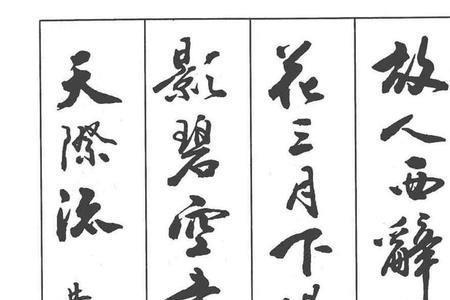 故人西辭
花三月下
影碧空
天際流